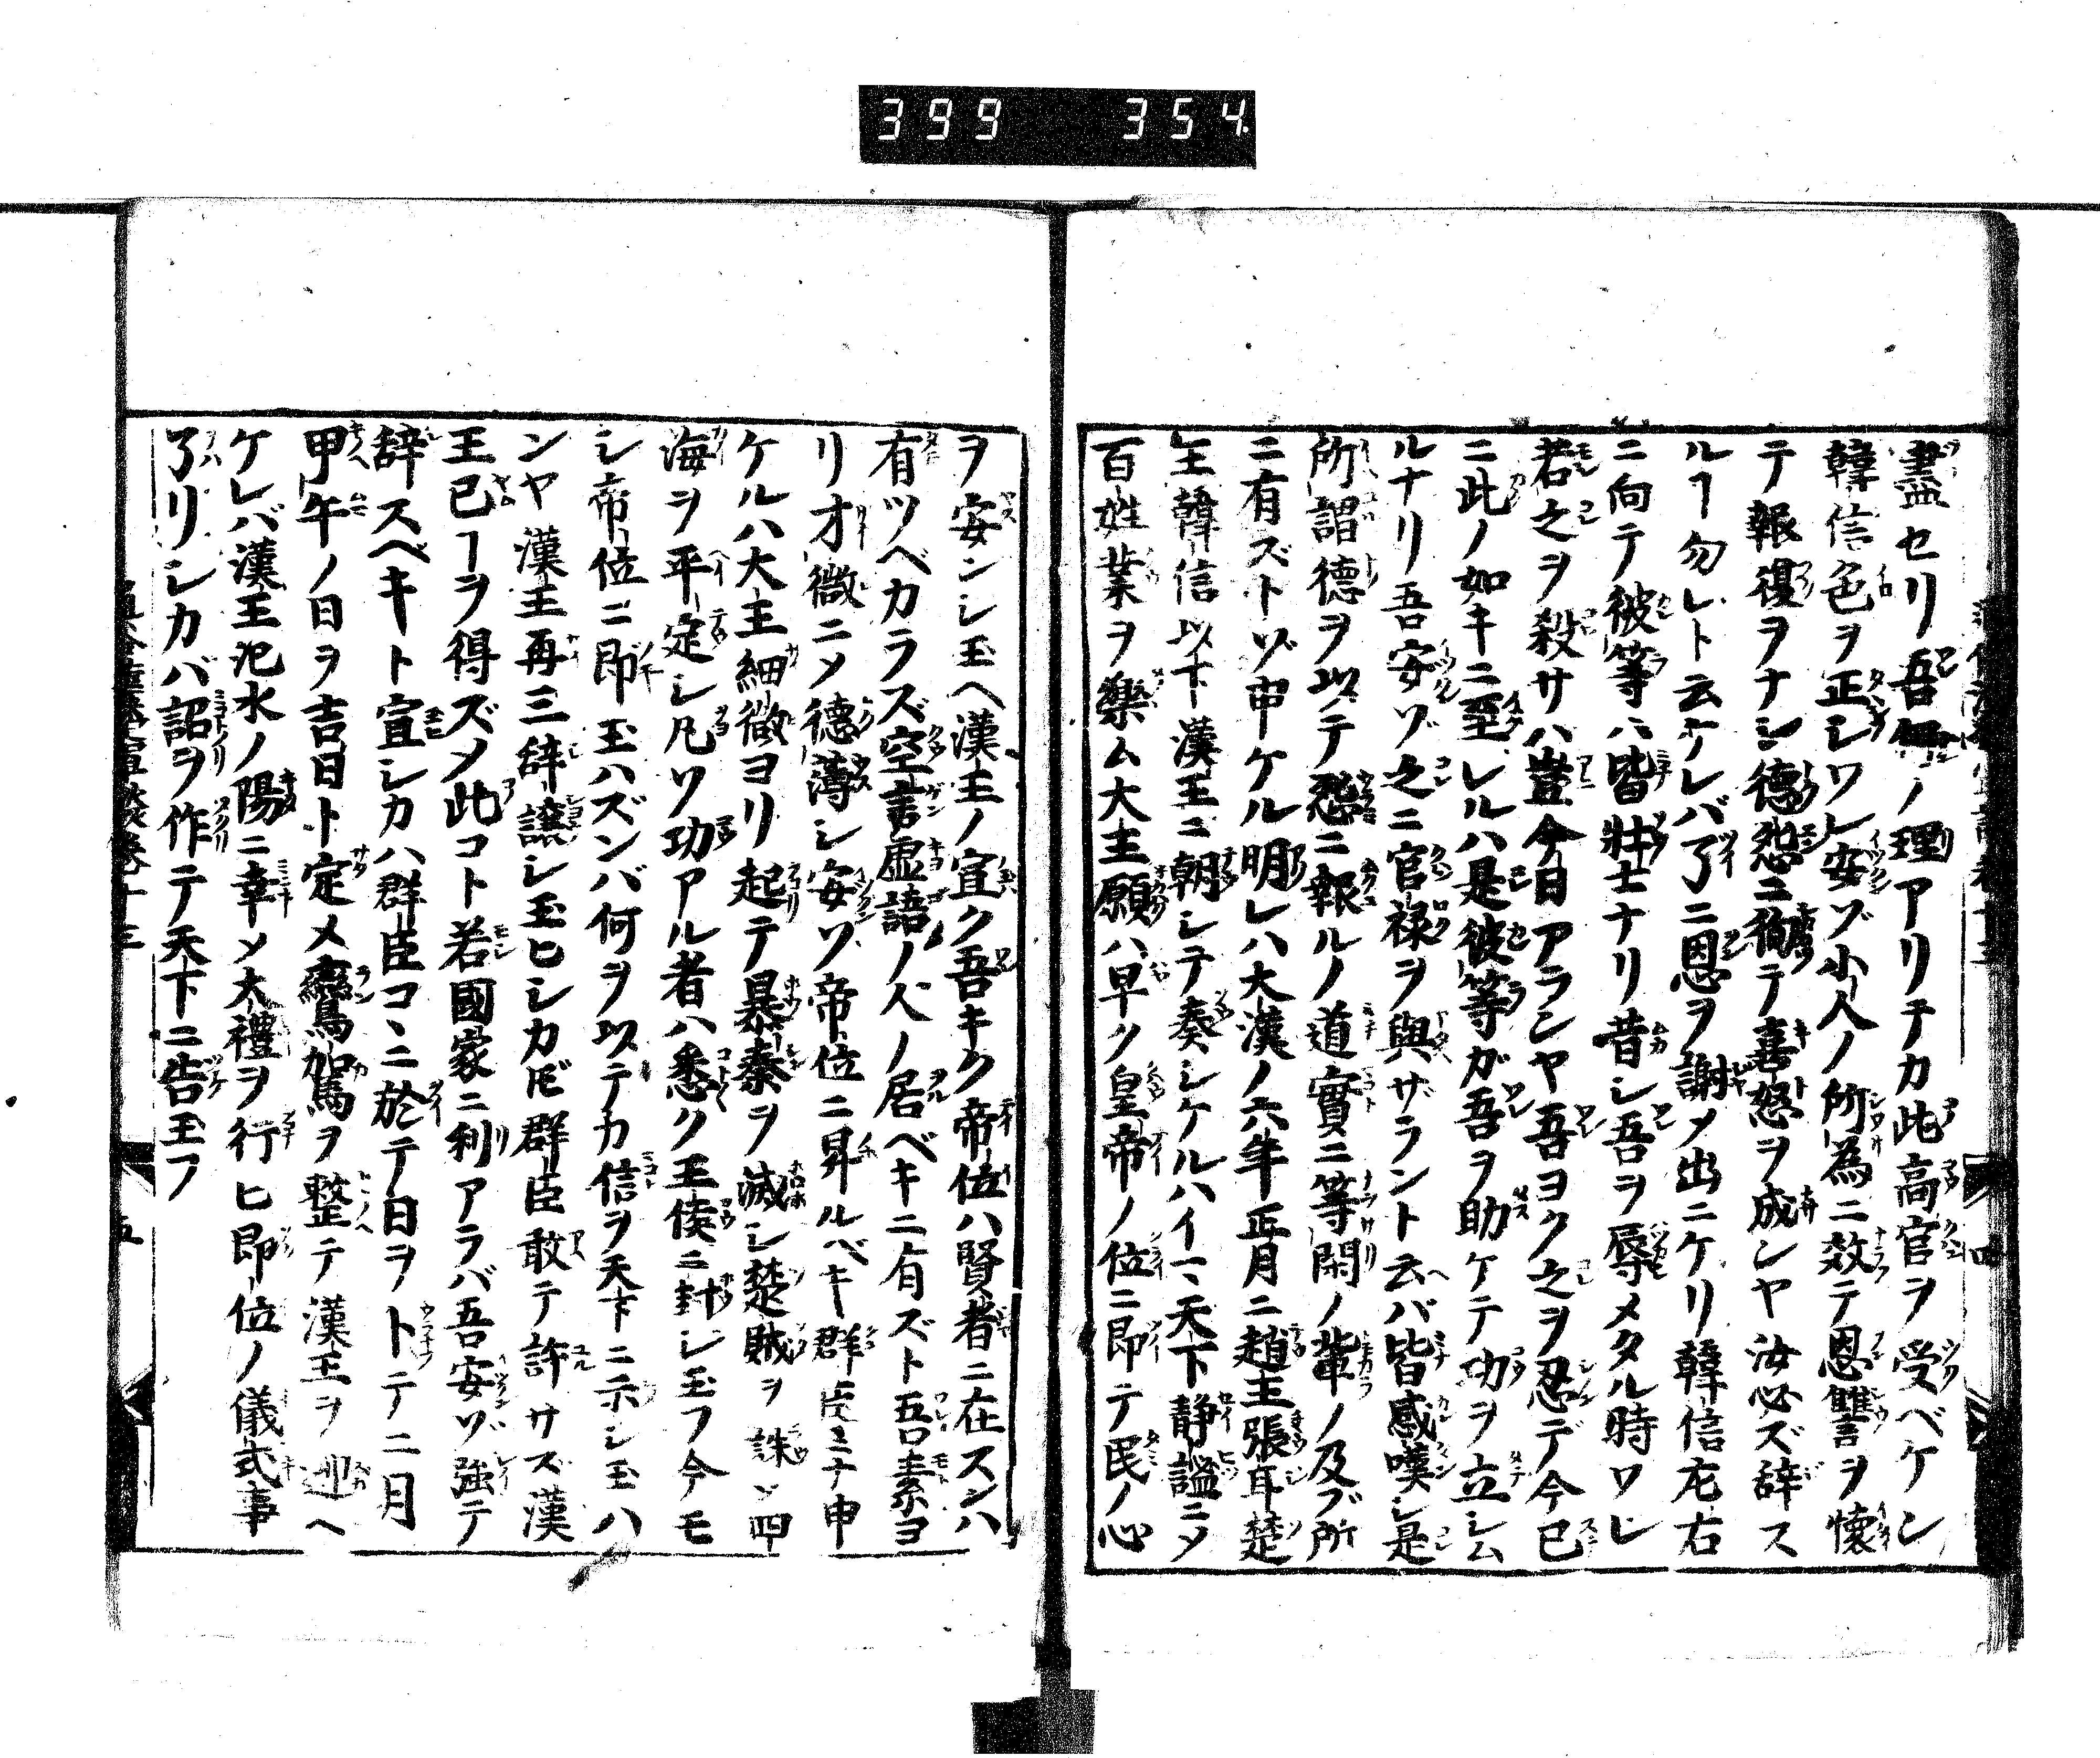 399 354
盡セリ吾何ノ理アリテカ此高官ヲ受ベケン
韓信色ヲ正シワレ安ゾ小人ノ所為ニ效テ恩讐ヲ懐
テ報復ヲナシ德怨ニ徇テ喜怒ヲ成シヤ汝必ズ辞ス
ルヿ勿レト云ケレバ了ニ恩ヲ謝メ出ニケリ韓信左右
ニ向テ彼等ハ皆壯士ナリ昔シ吾ヲ辱メタル時ワレ
若之ヲ殺サハ豈今日アランヤ吾ヨク之ヲ忍デ今已
ニ此ノ如キニ至レルハ是彼等ガ吾ヲ助ケテ功ヲ立シム
ルナリ吾安ゾ之ニ官禄ヲ與ザラント云バ皆感嘆シ是
所謂德ヲ以テ怨ニ報ルノ道實ニ等閑ノ輩ノ及ブ所
ニ有ズトゾ申ケル明レハ大漢ノ六年正月ニ趙王張耳楚
王韓信以下漢王ニ朝シテ奏シケルハイマ天下静謐ニメ
百姓業ヲ樂ム大王願ハ早ク皇帝ノ位ニ即テ民ノ心
ヲ安ンシ玉ヘ漢王ノ宣ク吾キク帝位ハ賢者ニ在スンハ
有ツベカラズ空言虚語ノ人ノ居ベキニ有ズト吾素ヨ
リオ微ニメ德薄シ安ゾ帝位ニ昇ルベキ群臣ミナ申
ケルハ大王細微ヨリ起テ暴秦ヲ滅シ楚賊ヲ誅シ四
海ヲ平定シ凡ソ功アル者ハ悉ク王侯ニ封シ玉フ今モ
シ帝位ニ即玉ハズンバ何ヲ以テカ信ヲ天下ニ示シ玉ハ
ンヤ漢王再三辞讓シ玉ヒシカ𪜈群臣敢テ許サズ漢
王已ヿヲ得ズメ此コト若國家ニ利アラバ吾安ゾ強テ
辞スベキト宣シカハ群臣コヽニ於テ日ヲトテ二月
甲午ノ日ヲ吉日ト定メ鸞駕ヲ整テ漢王ヲ迎ヘ
ケレバ漢王氾水ノ陽ニ幸メ大禮ヲ行ヒ即位ノ儀式事
了リシカバ詔ヲ作テ天下ニ告玉フ
五